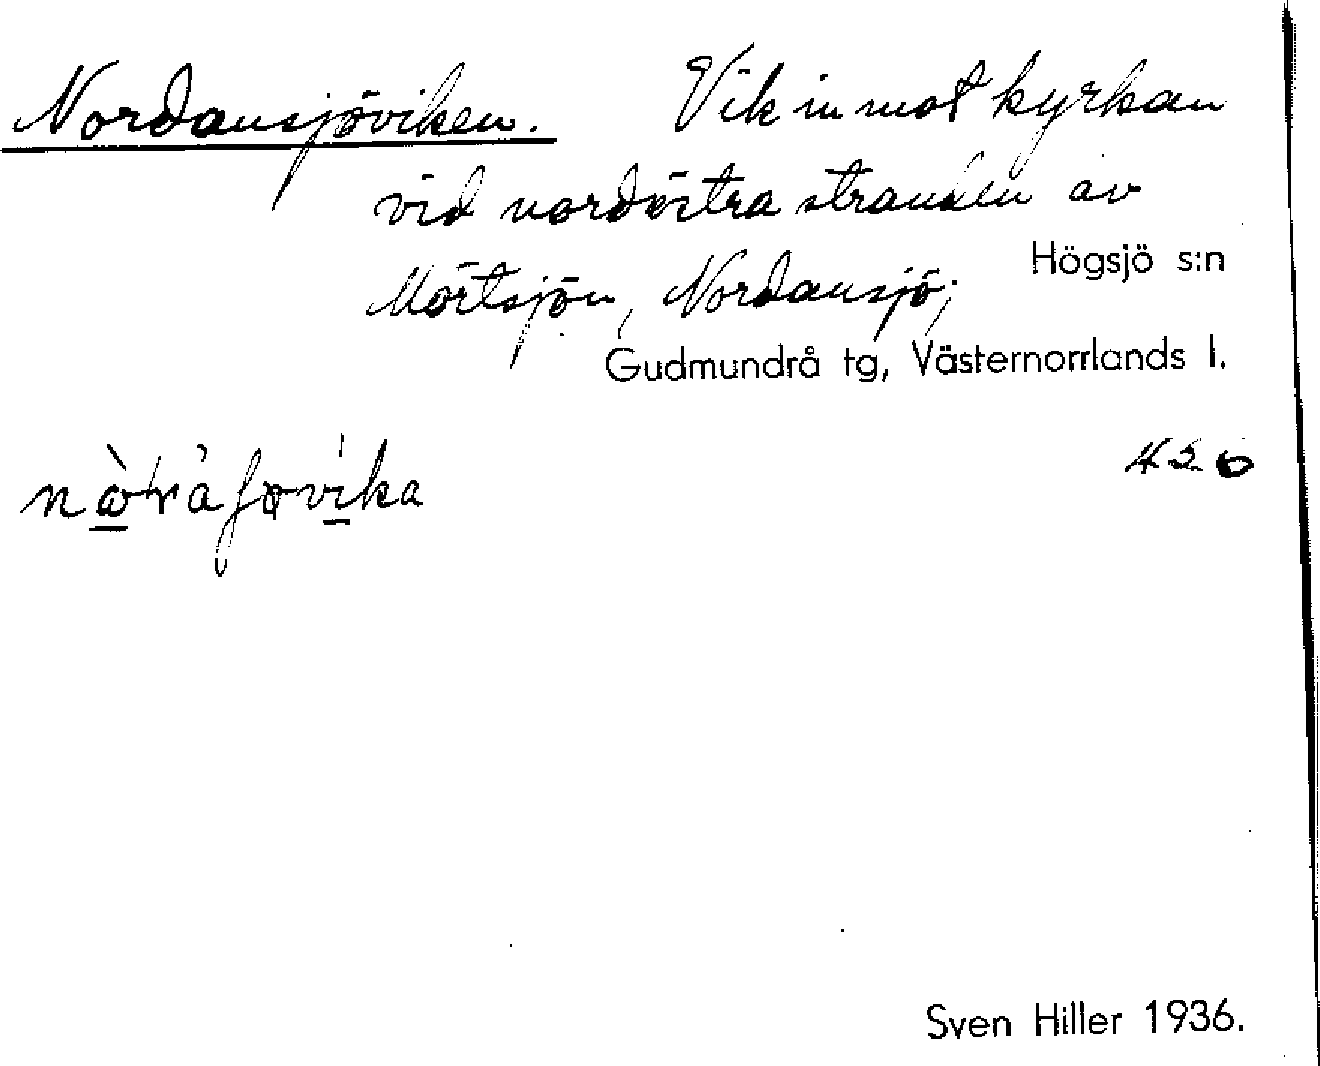 Nordansjöviken. Vik in mot kyrkan
vid nordöstra stranden av
Mörtsjön, Nordansjö;
Högsjö s:n
Gudmundrå tg, Västernorrlands l.
426
Sven Hiller 1936.